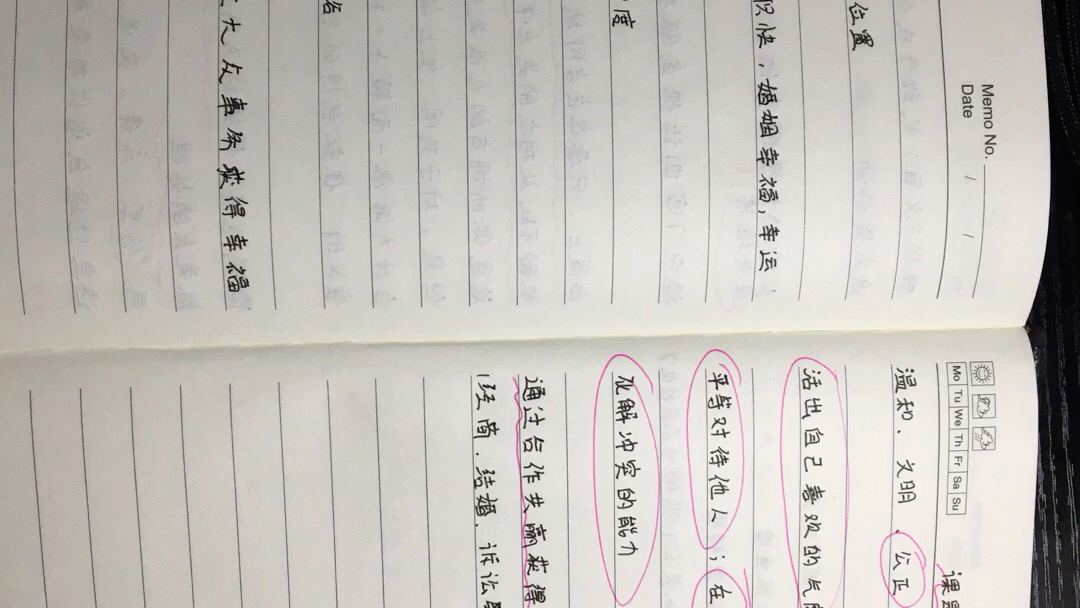 Memo No.
Date / /
位置
快，婚姻幸福，幸运
度
大众事务获得幸福
Mo Tu We Th Fr Sa Su
课
温和、文明、公正
活出自己喜欢的气
平等对待他人；在
化解冲突的能力
通过合作共赢获得
(经商、结婚、诉讼